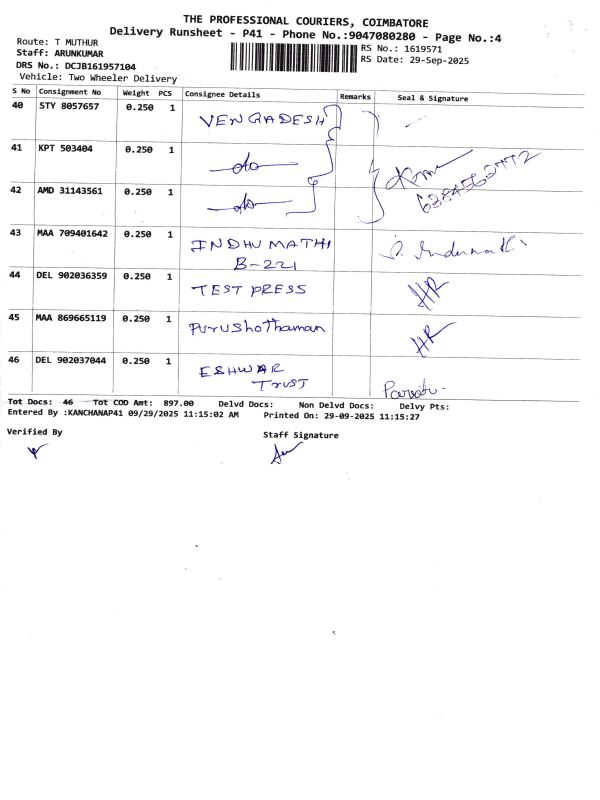 THE PROFESSIONAL COURIERS, COIMBATORE
Delivery Runsheet - P41 - Phone No.:9047080280 - Page No.:4
Route: T MUTHUR
RS No.: 1619571
Staff: ARUNKUMAR
RS Date: 29-Sep-2025
DRS No.: DCJB161957104
Vehicle: Two Wheeler Delivery
S No Consignment No Weight PCS Consignee Details Remarks Seal & Signature
40 STY 8057657 0.250 1 VENGADESH
41 KPT 503404 0.250 1 do
6284562772
42 AMD 31143561 0.250 1 do
43 MAA 709401642 0.250 1 INDHUMATHI
B-221
44 DEL 902036359 0.250 1 TEST PRESS HR
45 MAA 869665119 0.250 1 Purushothaman HR
46 DEL 902037044 0.250 1 ESHWAR
Trust
Tot Docs: 46 Tot COD Amt: 897.00 Delvd Docs: Non Delvd Docs: Delvy Pts:
Entered By :KANCHANAP41 09/29/2025 11:15:02 AM Printed On: 29-09-2025 11:15:27
Verified By
Staff Signature